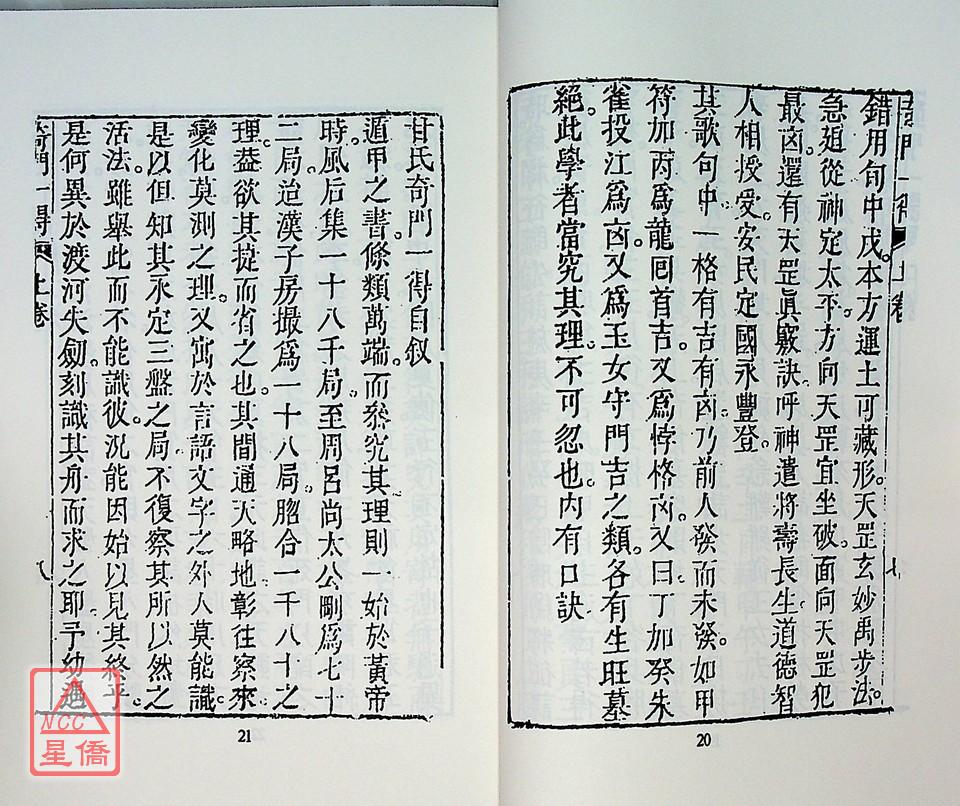 奇門一得 上卷 七
錯用旬中戌。本方運土可藏形。天罡玄妙禹步法。
急逥從神定太平。方向天罡宜坐破。面向天罡犯
最㐫。還有天罡眞竅訣。呼神遣將壽長生。道德智
人相授受。安民定國永豐登。
其歌句中一格有吉有㐫。乃前人發而未發。如甲
符加丙爲龍囘首吉。又爲悖格㐫。又曰丁加癸朱
雀投江爲㐫。又爲玉女守門吉之類。各有生旺墓
絕。此學者當究其理。不可忽也。内有口訣
20
甘氏奇門一得自叙
遁甲之書。條類萬端。而叅究其理則一。始於黃帝
時。風后集一千八十局。至周呂尚太公刪爲七十
二局。迨漢子房撮爲一十八局。脗合一千八十之
理。葢欲其㨗而省之也。其間通天略地。彰往察來。
變化莫測之理。又寓於言語文字之外。人莫能識。
是以但知其永定三盤之局。不復察其所以然之
活法。雖舉此而不能識彼。况能因始以見其終乎。
是何異於渡河失劍刻識其舟而求之耶。予幼遇
奇門一得 上卷 八
21
NCC
星僑